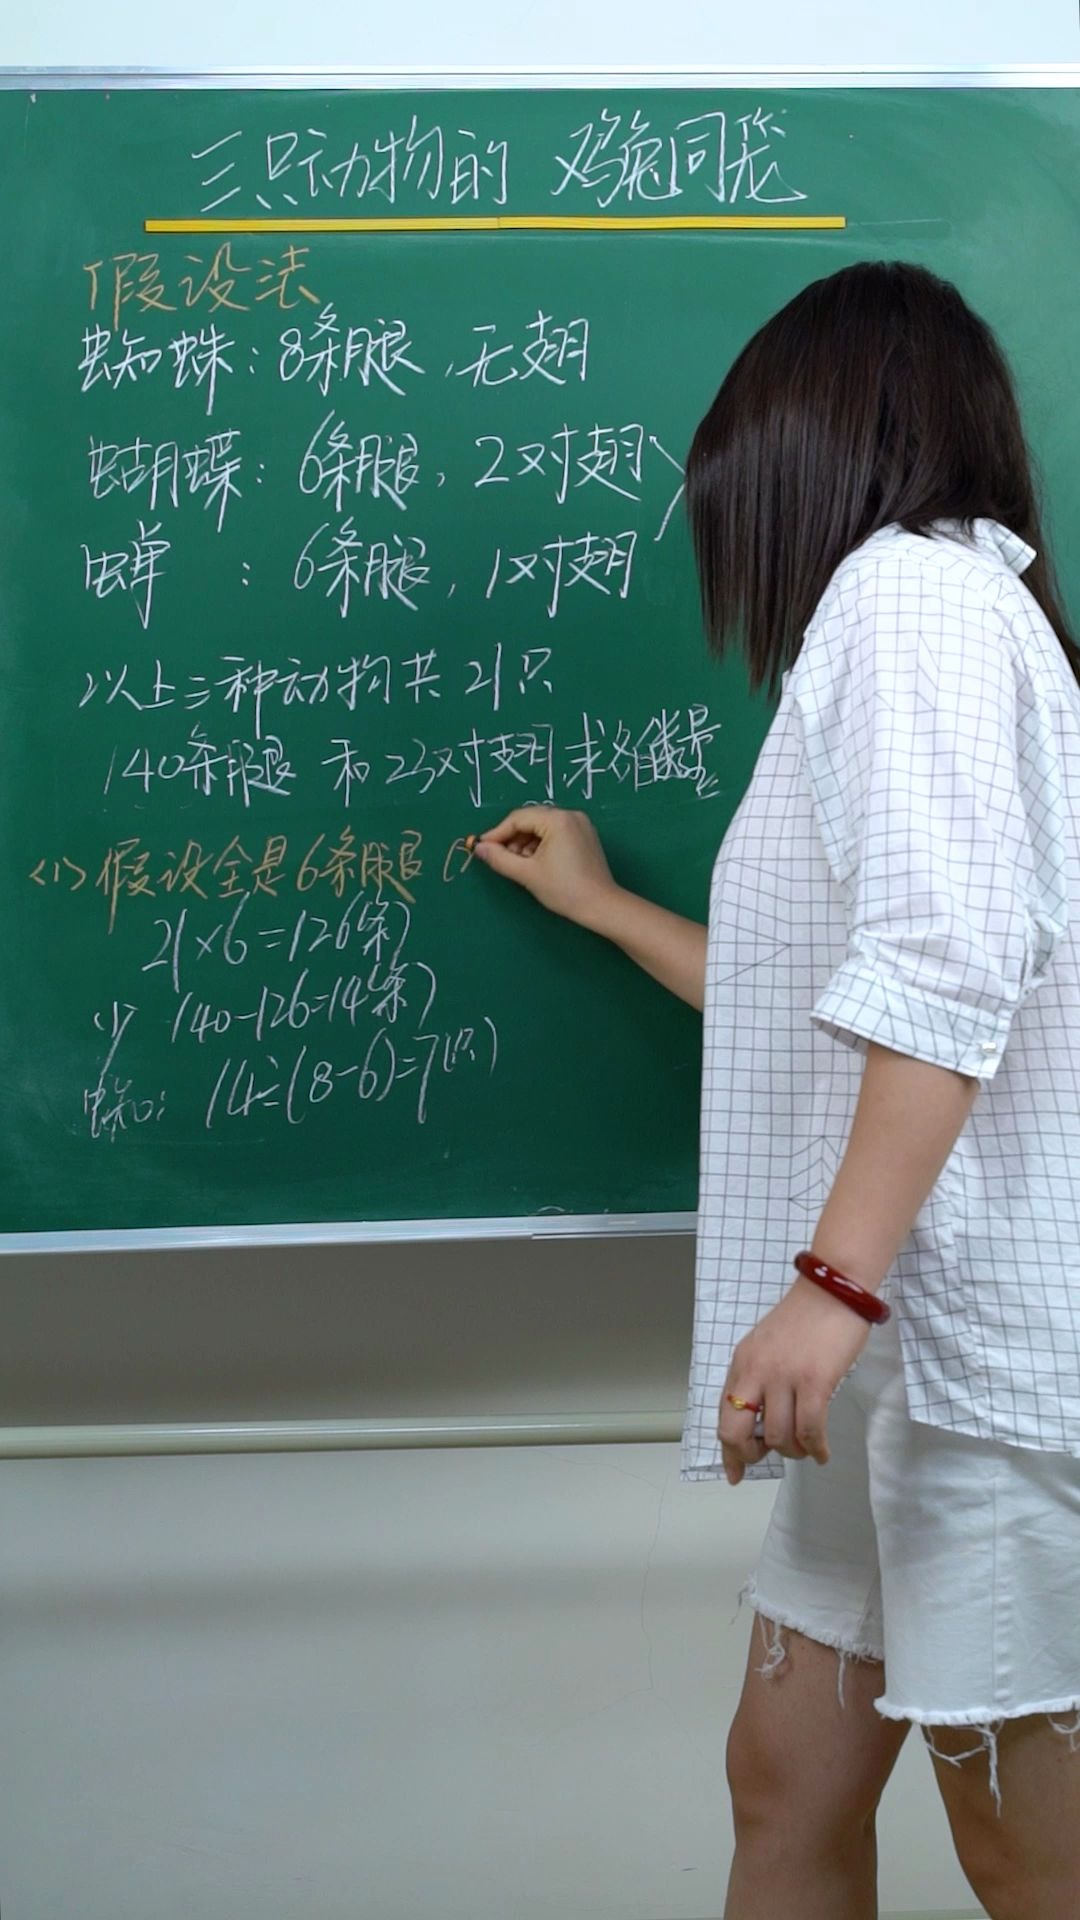 三只动物的 鸡兔同笼
假设法
蜘蛛：8条腿，无翅
蝴蝶：6条腿，2对翅
蝉：6条腿，1对翅
以上三种动物共21只
140条腿 和23对翅，求各自数量
<1>假设全是6条腿（
21×6=126(条)
少 140-126=14(条)
14÷(8-6)=7(只)